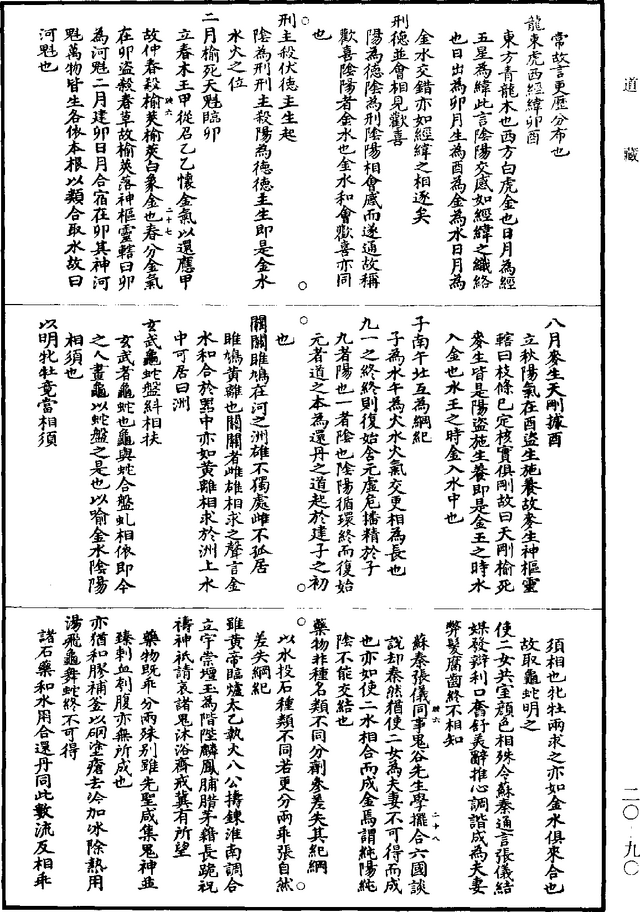 道藏
常故言更歷分布也
龍東虎西經緯卯酉
東方青龍木也西方白虎金也日月為經
五星為緯此言陰陽交感如經緯之織絡
也日出為卯月生為酉為金為水日月為
金水交錯亦如經緯之相逐矣
刑德並會相見歡喜
陽為德陰為刑陰陽相會感而遂通故稱
歡喜陰陽者金水也金水和會歡喜亦同
也
刑主殺伏德主生起
陰為刑刑主殺陽為德德主生即是金水
水火之位
二月榆死天魁臨卯
立春木王甲從召乙乙懷金氣以還應甲
故仲春殺榆莢榆莢白象金也春分金氣
在卯盜殺春草故榆莢落神樞靈轄曰卯
為河魁二月建卯日月合宿在卯其神河
魁萬物皆生各依本根以類合取水故曰
河魁也
八月麥生天剛據酉
立秋陽氣在酉盜生施養故麥生神樞靈
轄曰枝條已定核實俱剛故曰天剛榆死
麥生皆是陽盜施生養即是金王之時水
入金也水王之時金入水中也
子南午北互為綱紀
子為水午為火水火氣交更相為長也
九一之終終則復始含元虛危播精於子
九者陽也一者陰也陰陽循環終而復始
元者道之本為還丹之道起於建子之初
也
關關雎鳩在河之洲雄不獨處雌不孤居
雎鳩黃雞也關關者雌雄相求之聲言金
水和合於器中亦如黃雞相求於洲上水
中可居曰洲
玄武龜蛇盤糾相扶
玄武者龜蛇也龜與蛇合盤虬相依即今
之人畫龜以蛇盤之是也以喻金水陰陽
相須也
以明牝牡竟當相須
須相也牝牡兩求之亦如金水俱來合也
故取龜蛇明之
使二女共室顏色相殊令蘇秦通言張儀結
媒發辯利口奮舒美辭推心調諧成為夫妻
弊髮腐齒終不相知
蘇秦張儀同事鬼谷先生學擺合六國談
說却秦然猶使二女為夫妻不可得而成
也亦如使二水相合而成金焉謂純陽純
陰不能交結也
藥物非種名類不同分劑參差失其紀綱
以水投石種類不同若更分兩乖張自然
差失綱紀
雖黃帝臨爐太乙執火八公擣鍊淮南調合
立宇崇壇玉為階陛麟鳳脯腊茅藉長跪祝
禱神祇請哀諸鬼沐浴齊戒冀有所望
藥物既乖分兩殊別雖先聖咸集鬼神並
臻刺血刳腹亦無所成也
亦猶和膠補釜以硇塗瘡去冷加冰除熱用
湯飛龜舞蛇終不可得
諸石藥和水用合還丹同此數流及相乖
二〇·九〇